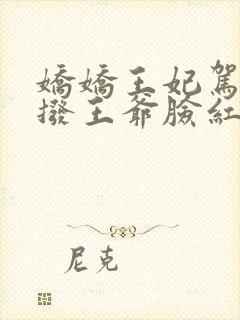 嬌嬌王妃駕
撥王爺臉紅
尼克